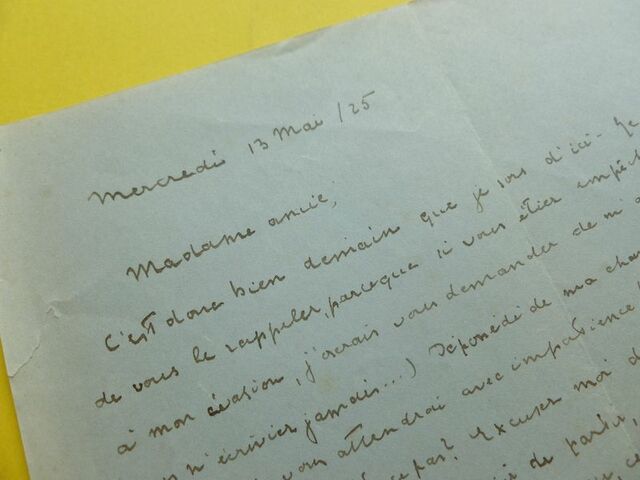 Mercredi 13 Mai /25
Madame amie,
C'est donc bien demain que je sors d'ici - Je
de vous le rappeler, parceque si vous étier empêch
à mon évasion, j'oserais vous demander de m'
n'écrivier jamais...) Dépossédé de ma cham
vous attendrai avec impatience
pas? Excuser moi d
de partir,